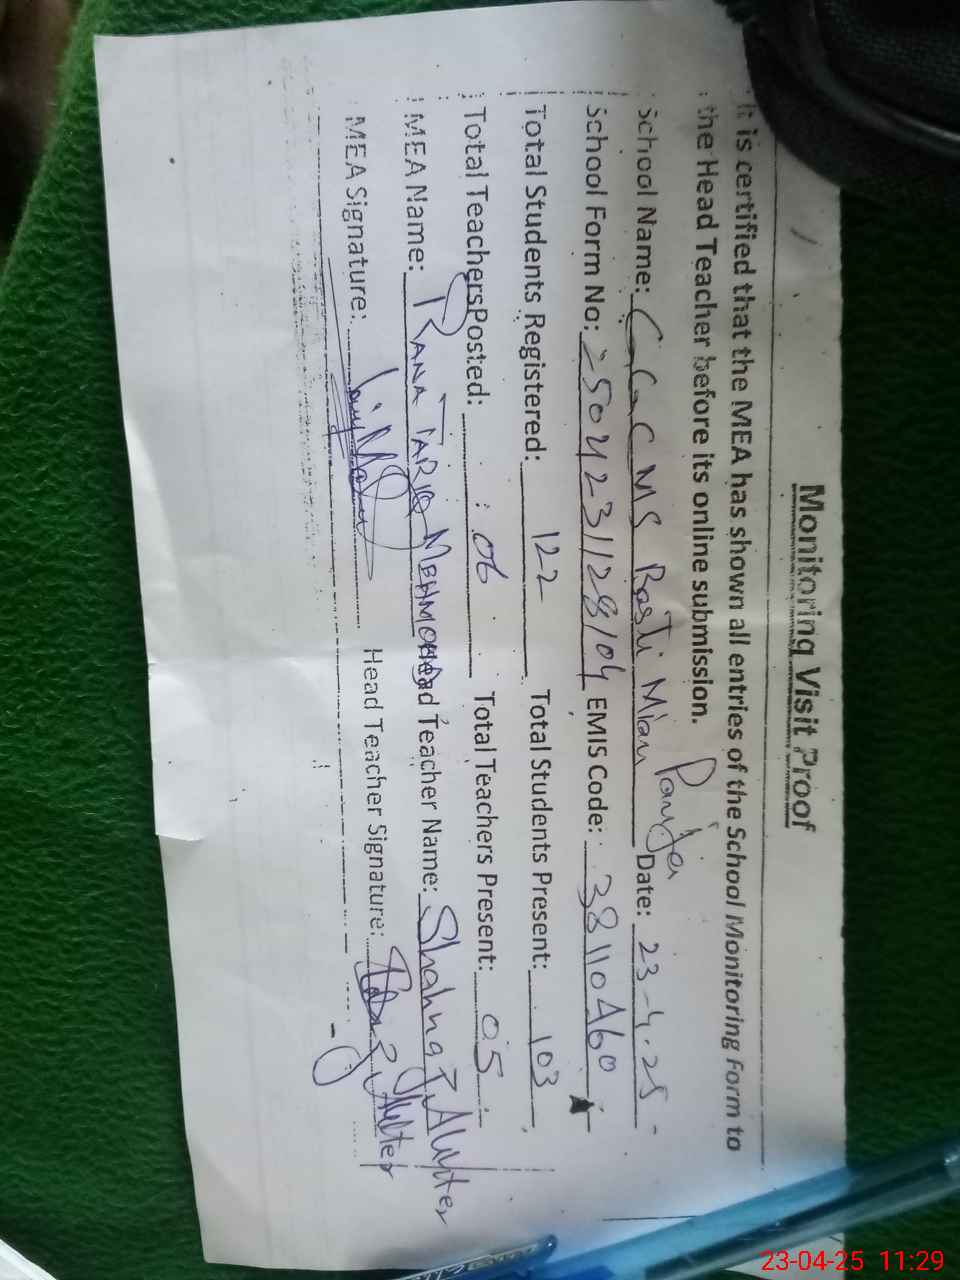 Monitoring Visit Proof
It is certified that the MEA has shown all entries of the School Monitoring Form to
the Head Teacher before its online submission.
School Name: G G C M S Basti Mian Panja Date: 23-4-25
School Form No: 2504231128104 EMIS Code: 38110460
Total Students Registered: 122 Total Students Present: 103
Total Teachers Posted: 06 Total Teachers Present: 05
MEA Name: RANA TARIQ MEHMOOD Head Teacher Name: Shahnaz Akhter
MEA Signature: Head Teacher Signature: Akhter
23-04-25 11:29